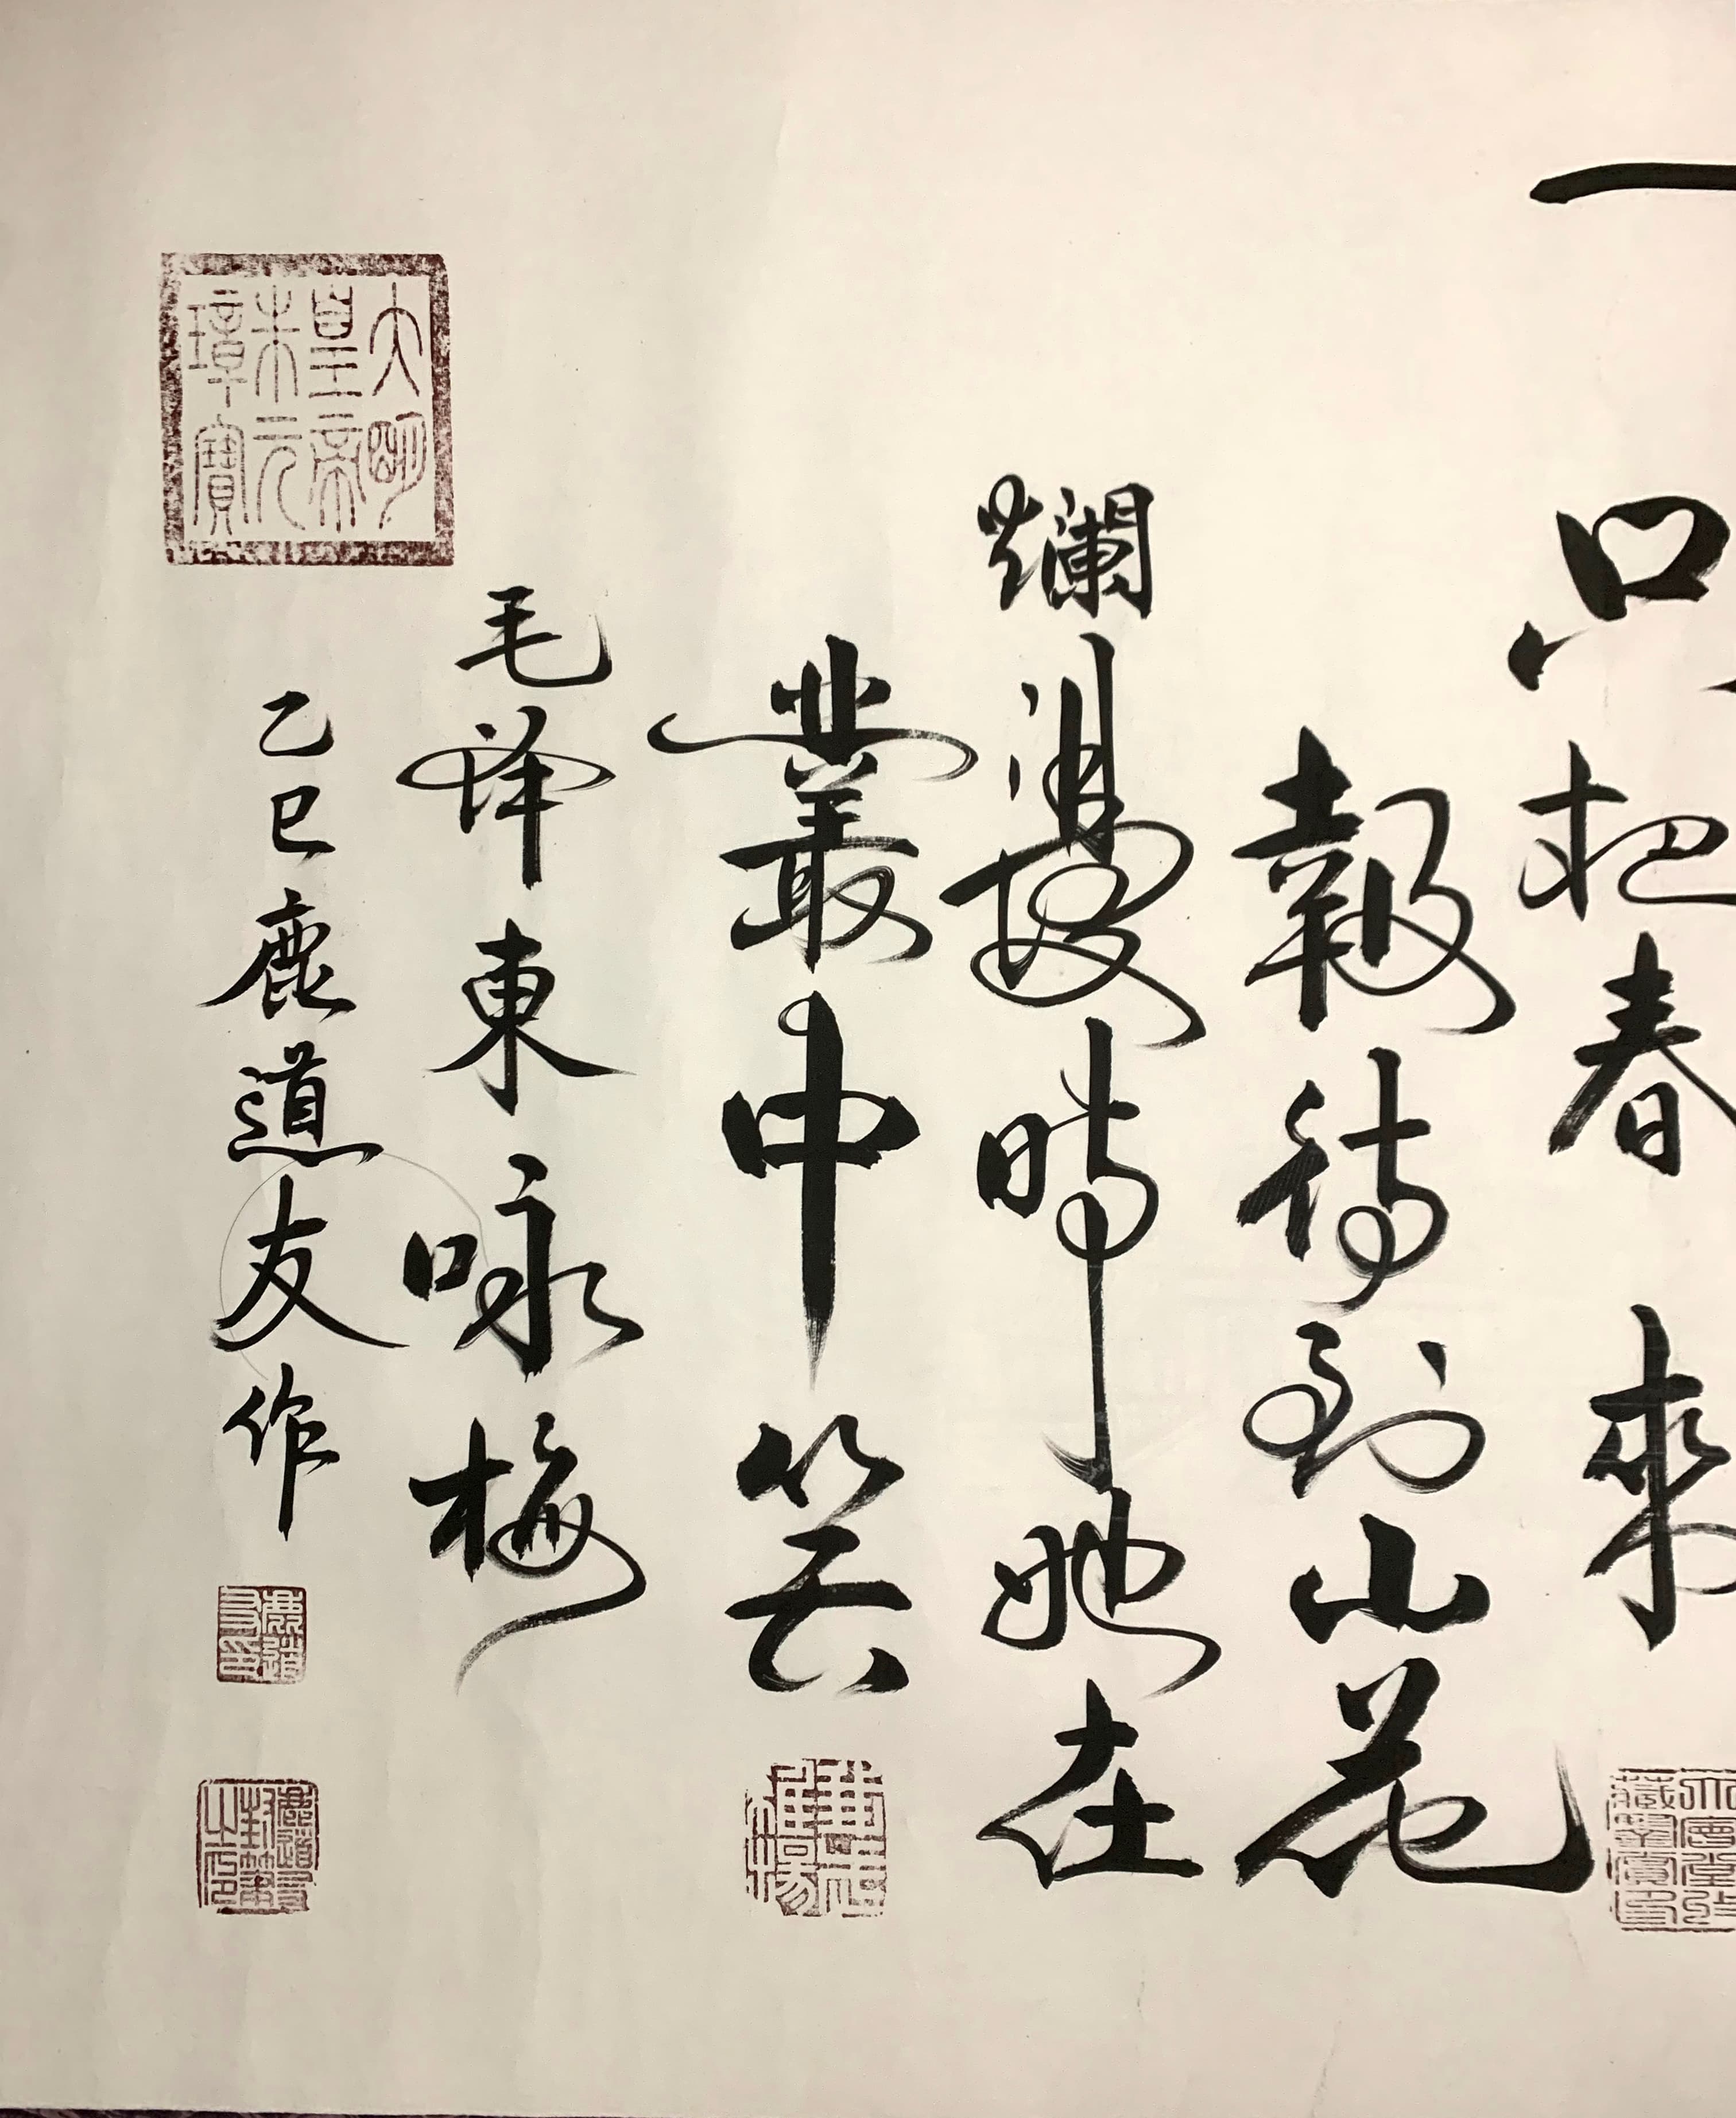 只把春來
報待到山花
爛漫時她在
叢中笑
毛泽東咏梅
大明
皇帝
朱元
璋寶
乙巳鹿道友作
鹿道
友印